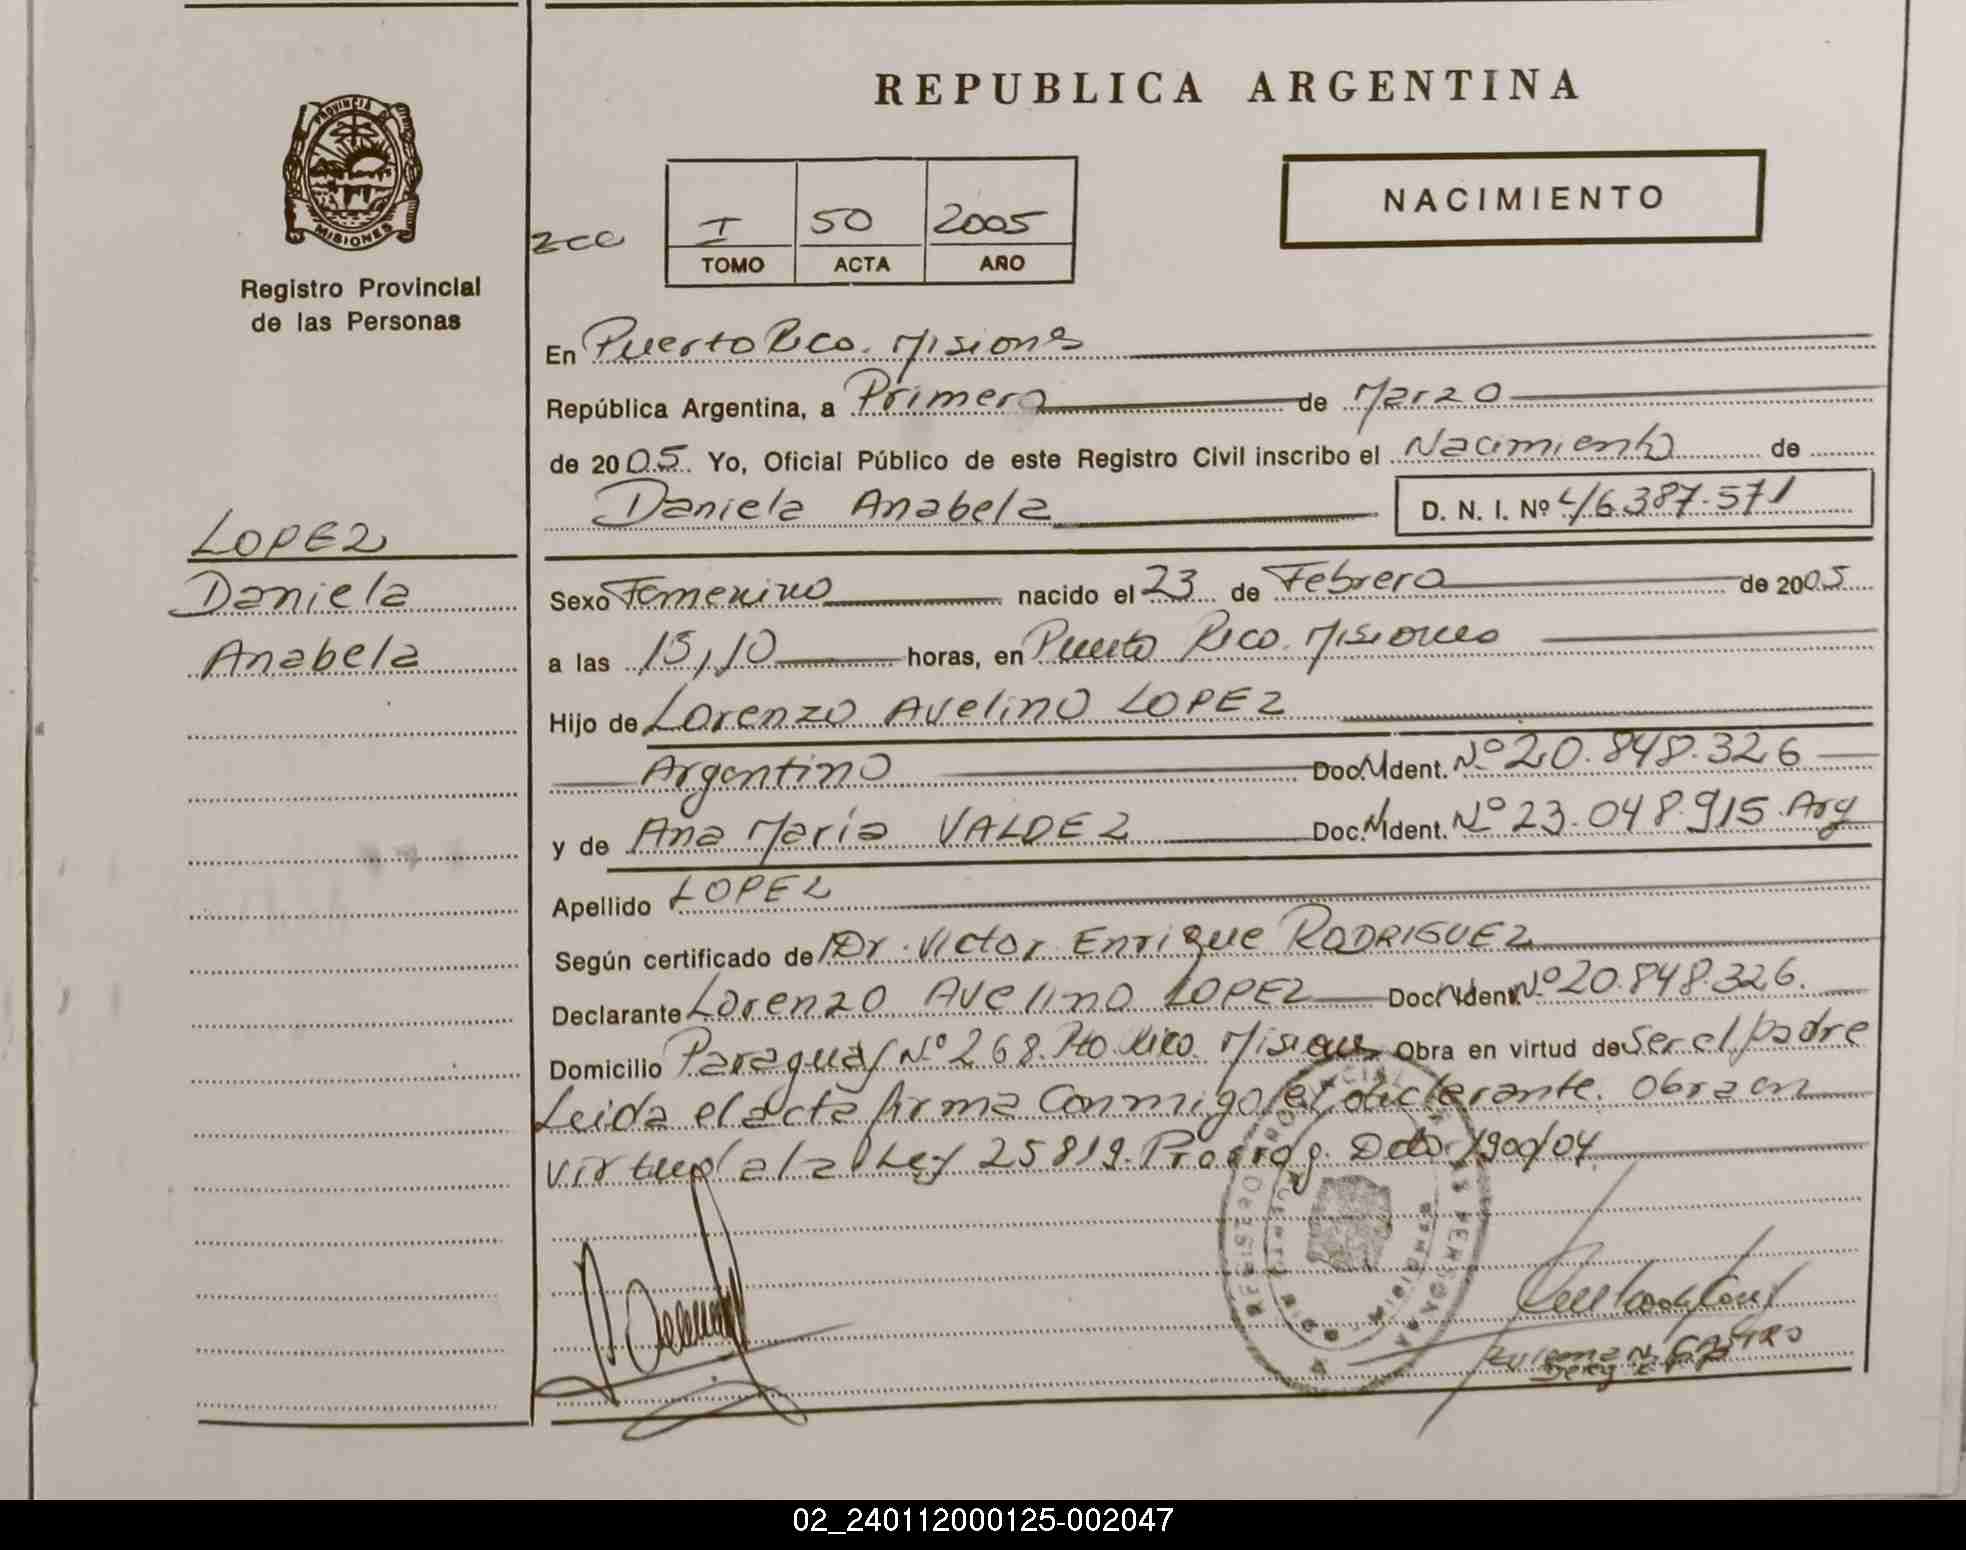 REPUBLICA ARGENTINA
PROVINCIA DE
MISIONES
Registro Provincial
de las Personas
I 50 2005
TOMO ACTA AÑO
NACIMIENTO
En Puerto Rico. Misiones
República Argentina, a Primero de Marzo
de 2005. Yo, Oficial Público de este Registro Civil inscribo el Nacimiento de
Daniela Anabela D. N. I. Nº 46.387.571
LOPEZ
Daniela
Anabela
Sexo Femenino nacido el 23 de Febrero de 2005
a las 15,10 horas, en Puerto Rico. Misiones
Hijo de Lorenzo Avelino LOPEZ
Argentino Doc. Ident. Nº 20.848.326
y de Ana María VALDEZ Doc. Ident. Nº 23.048.915 Arg
Apellido LOPEZ
Según certificado de Dr. Victor Enrique RODRIGUEZ
Declarante Lorenzo Avelino LOPEZ Doc. Ident. Nº 20.848.326.
Domicilio Paraguay Nº 268. Pto Rico. Misiones Obra en virtud de Ser el padre
Leida el acta firma Conmigo el declarante. Obra en
virtud a la Ley 25819. Prorrog. Dcto. 1900/04
REGISTRO PROVINCIAL DE LAS PERSONAS
MISIONES
CASTRO
02_240112000125-002047